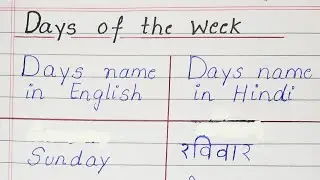 Days of the Week
Days name Days name
in English in Hindi
Sunday रविवार